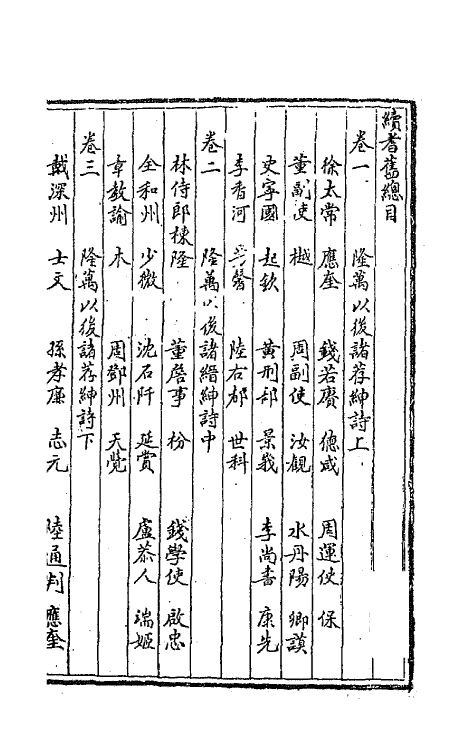 續耆舊總目
卷一 隆萬以後諸荐紳詩上
徐太常 應奎 錢若賡 德咸 周運使 保
董副使 樾 周副使 汝觀 水丹陽 卿謨
史寧國 起欽 黃刑部 景莪 李尚書 康先
李香河 陸右都 世科
卷二 隆萬以後諸縉紳詩中
林侍郎棟隆 董詹事 枌 錢學使 啟忠
全和州 少微 沈石阡 延賞 盧恭人 瑞姬
章教諭 木 周鄧州 天覺
卷三 隆萬以後諸荐紳詩下
戴深州 士文 孫孝廉 志元 陸通判 應奎